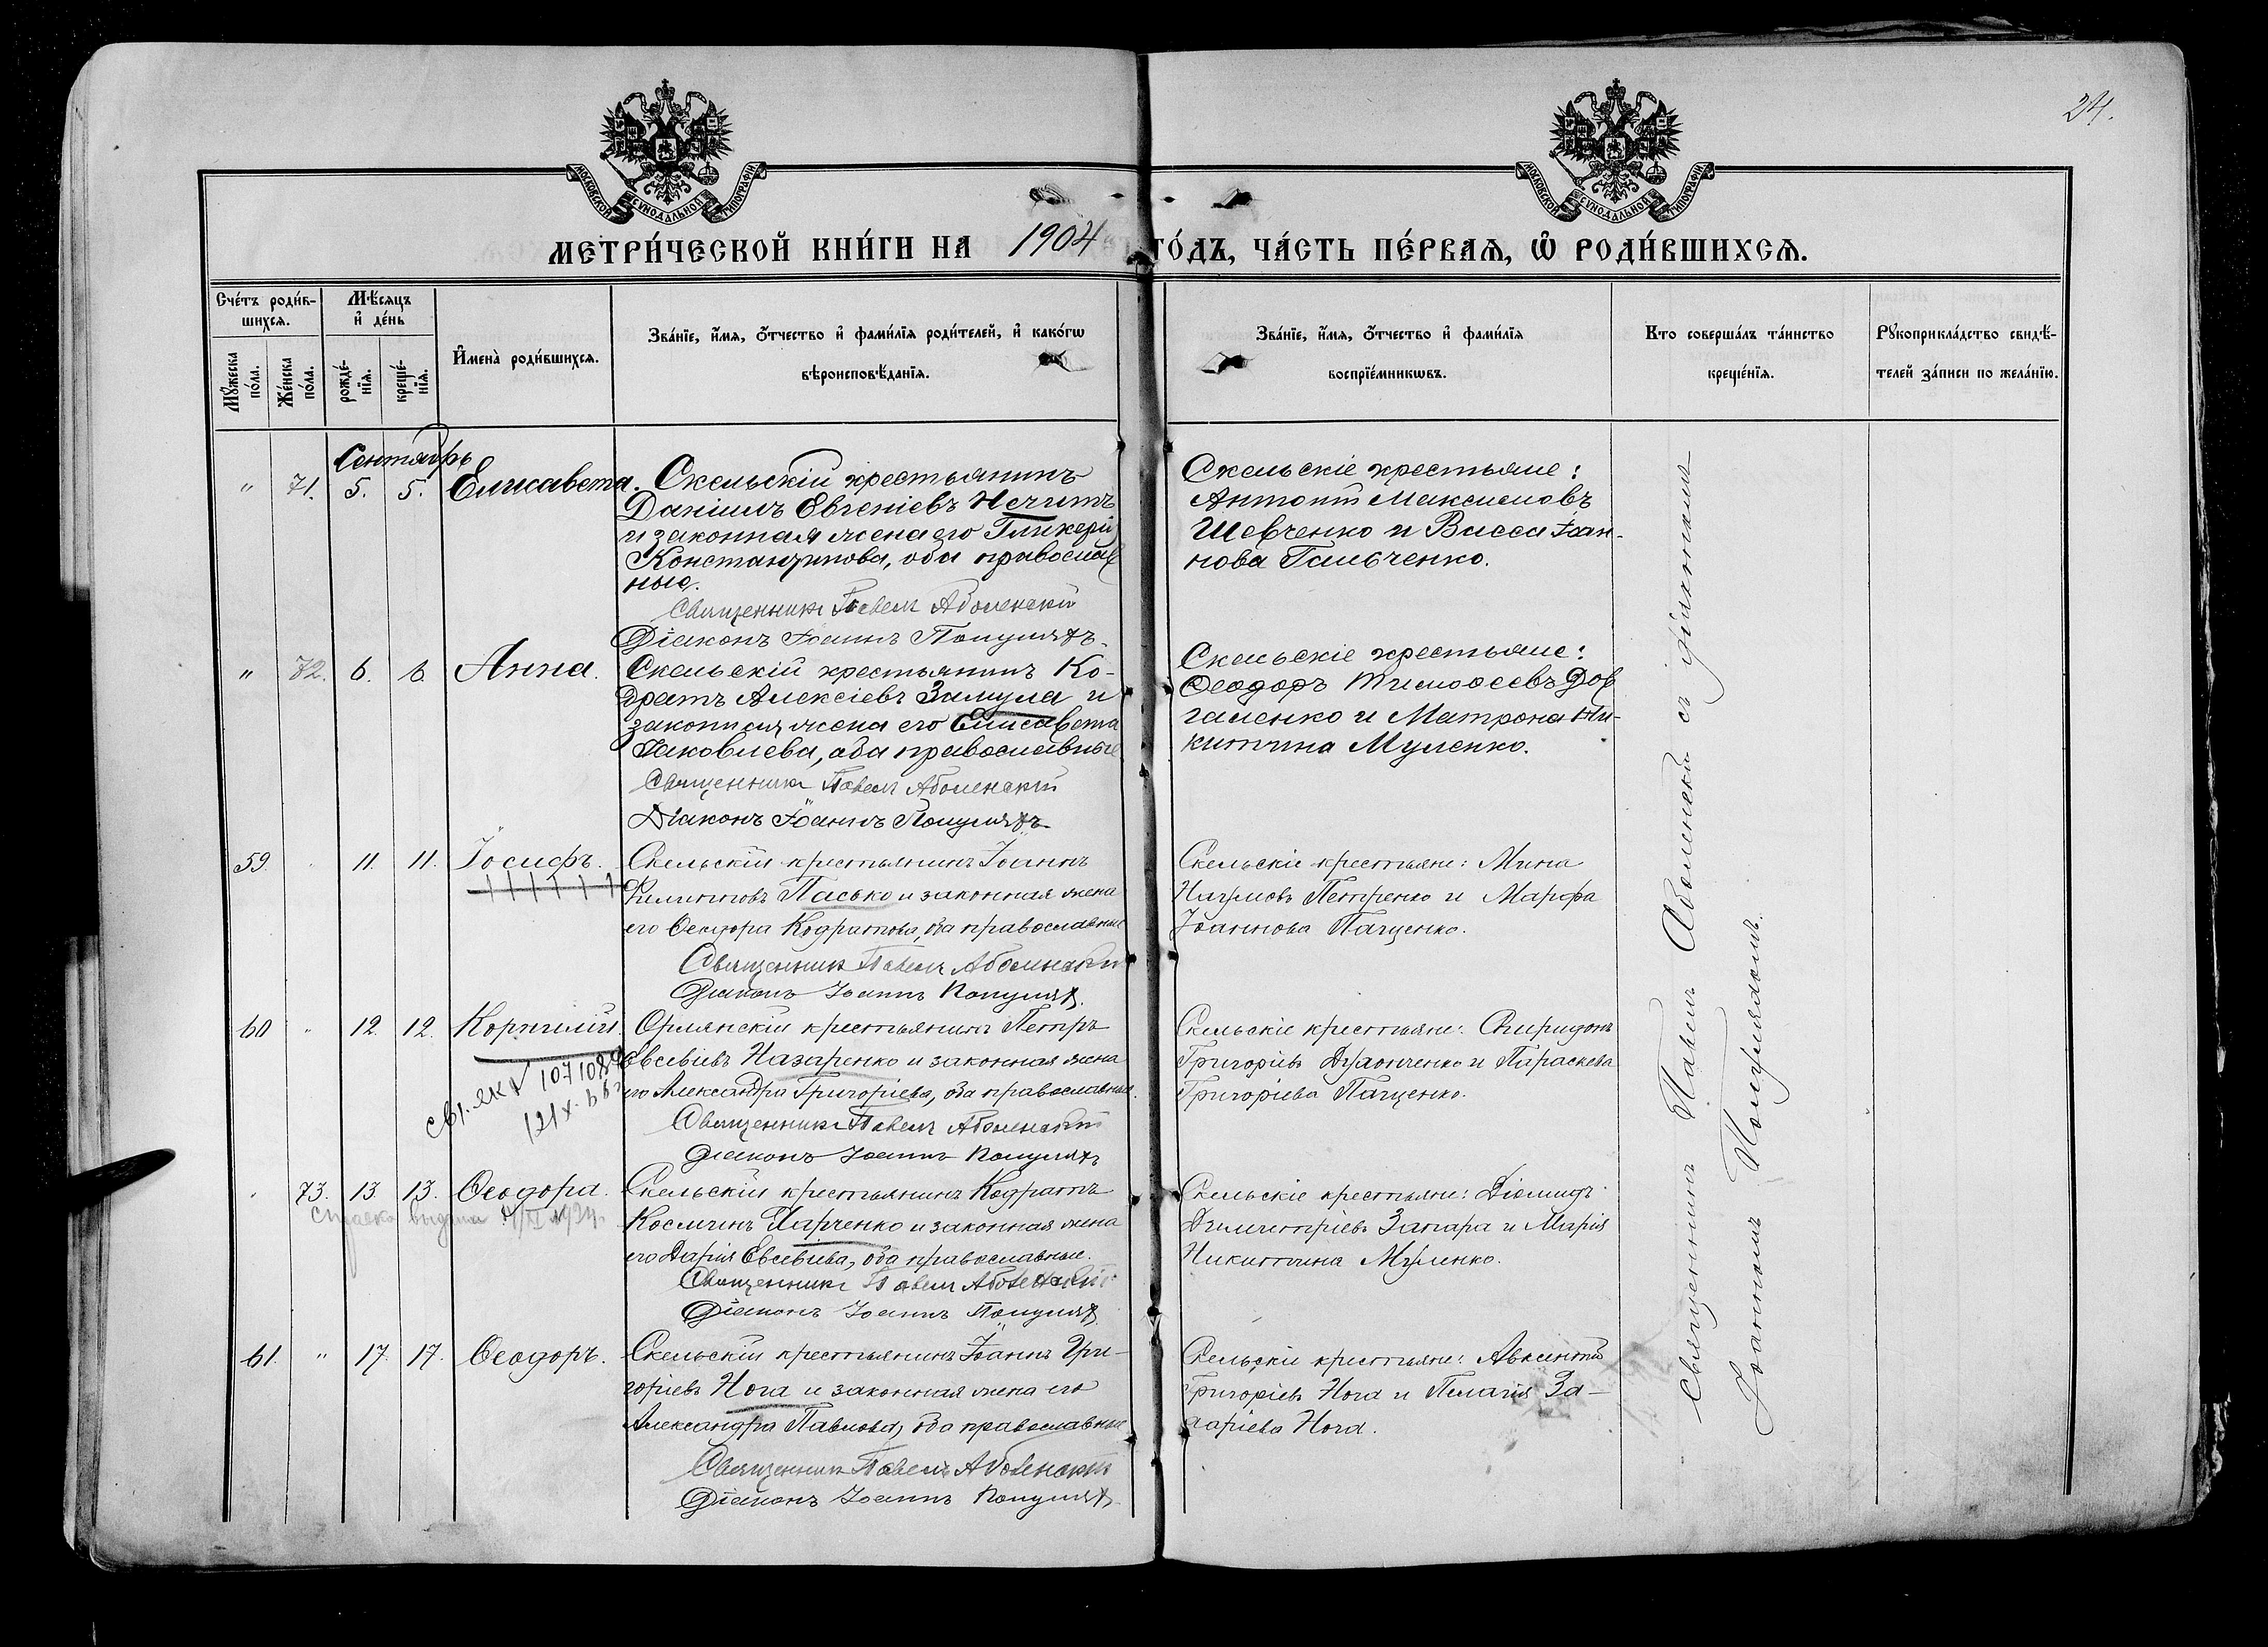 24.
МОСКОВСКОЙ СѴНОДАЛЬНОЙ ТИПОГРАФІИ
МОСКОВСКОЙ СѴНОДАЛЬНОЙ ТИПОГРАФІИ
МЕТРИ́ЧЕСКОЙ КНИ́ГИ НА 1904 ГО́ДЪ, ЧА́СТЬ ПЕ́РВАЯ, Ѡ РОДИ́ВШИХСЯ.
Сче́тъ роди́в-
шихся.
Мѣ́сяцъ
и де́нь
Мꙋ́жеска
по́ла.
Же́нска
по́ла.
рожде́-
нїя.
креще́-
нїя.
Имена̀ роди́вшихся.
Зва́нїе, и́мя, о́тчество и фами́лїя роди́телей, и како́гѡ
вѣроисповѣ́данїя.
Зва́нїе, и́мя, о́тчество и фами́лїя
воспрїе́мникѡвъ.
Кто соверша́лъ та́инство
креще́нїя.
Рꙋкоприкла́дство свидѣ́-
телей за́писи по жела́нїю.
Сентябрь
" 71. 5. 5. Елисавета. Скельскій крестьянинъ
Даніилъ Евгеніевъ
и законная жена его Гликерія
Константинова, оба православ
ные.
Священникъ Павелъ Аболенскій
Діаконъ Іоаннъ Популяхъ
Скельскіе крестьяне:
Антоній Максимовъ
Шевченко и Васса Іоан-
нова Гальченко.
" 72. 6. 6. Анна. Скельскій крестьянинъ Ко-
дратъ Алексіевъ Замула и
законная жена его Елисавета
Іаковлева, оба православные
Священникъ Павелъ Аболенскій
Діаконъ Іоаннъ Популяхъ
Скельскіе крестьяне:
Ѳеодоръ Тимоѳеевъ Дов
галенко и Матрона Ни-
китина Муленко.
59. " 11. 11. Іосифъ. Скельскій крестьянинъ Іоаннъ
Филипповъ Пасько и законная жена
его Ѳеодора Кодратова, оба православные
Священникъ Павелъ Аболенскій
Діаконъ Іоаннъ Популяхъ
Скельскіе крестьяне: Мина
Наумовъ Петренко и Марфа
Іоаннова Пащенко.
60 " 12. 12. Корнилій. Орлянскій крестьянинъ Петръ
Евсевіевъ Назаренко и законная жена
его Александра Григоріева, оба православные.
Священникъ Павелъ Аболенскій
Діаконъ Іоаннъ Популяхъ
Скельскіе крестьяне: Спиридонъ
Григоріевъ и Параскева
Григоріева Пащенко.
" 73. 13. 13. Ѳеодора. Скельскій крестьянинъ Кодратъ
Косминъ Харченко и законная жена
его Дарія Евсевіева, оба православные.
Священникъ Павелъ Аболенскій
Діаконъ Іоаннъ Популяхъ
Скельскіе крестьяне: Діомидъ
Димитріевъ Запара и Марія
Никитина Муленко.
61. " 17. 17. Ѳеодоръ. Скельскій крестьянинъ Іоаннъ Гри-
горіевъ Нога и законная жена его
Александра Павлова, оба православные
Священникъ Павелъ Аболенскій
Діаконъ Іоаннъ Популяхъ
Скельскіе крестьяне: Авксентій
Григоріевъ Нога и Пелагія За-
харіева Нога.
Священникъ Павелъ Аболенскій съ діакономъ
Іоанномъ Популяхомъ.